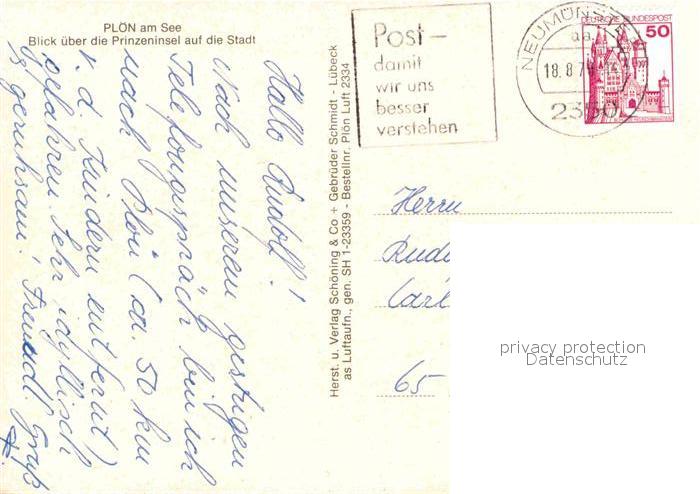 PLÖN am See
Blick über die Prinzeninsel auf die Stadt
Hallo Rudolf!
Nach unserem gestrigen
Telefongespräch bin ich
nach Plön (ca. 50 km
v. d. Kindern entfernt)
gefahren. Sehr idyllisch
u. geruhsam! Freundl. Gruß
Herst. u. Verlag Schöning & Co + Gebrüder Schmidt - Lübeck
as Luftaufn., gen. SH 1-23359 - Bestellnr. Plön Luft 2334
Post -
damit
wir uns
besser
verstehen
NEUMÜNSTER
18.8.7
2350
DEUTSCHE BUNDESPOST
50
Herrn
Rud
Carl
65
privacy protection
Datenschutz